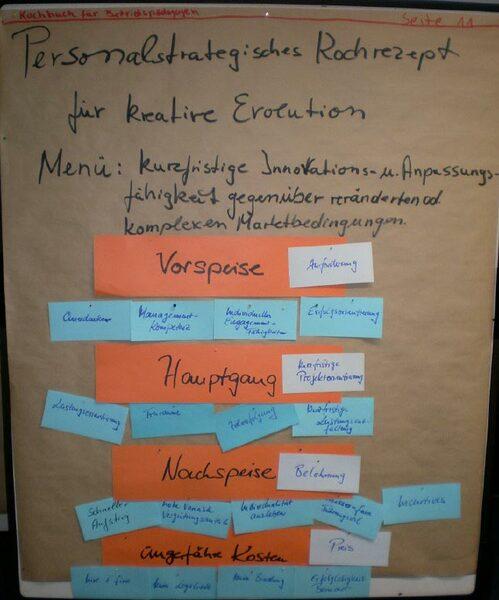 Kochbuch für Betriebspädagogen
Seite 11
Personalstrategisches Kochrezept
für kreative Evolution
Menü: kurzfristige Innovations- u. Anpassungs-
fähigkeit gegenüber veränderten od.
komplexen Marktbedingungen.
Vorspeise
Querdenker
Management-
Kompetenz
Individuelles
Engagement-
fähigkeiten
Erfolgsorientierung
Hauptgang
Kurzfristige
Projektorientierung
Leistungsorientierung
Kurzfristige
Nachspeise
Belohnung
Schneller
Aufstieg
hohe variable
Individualität
ausleben
Incentives
ungefähre Kosten
Preis
hire + fire
keine Bindung